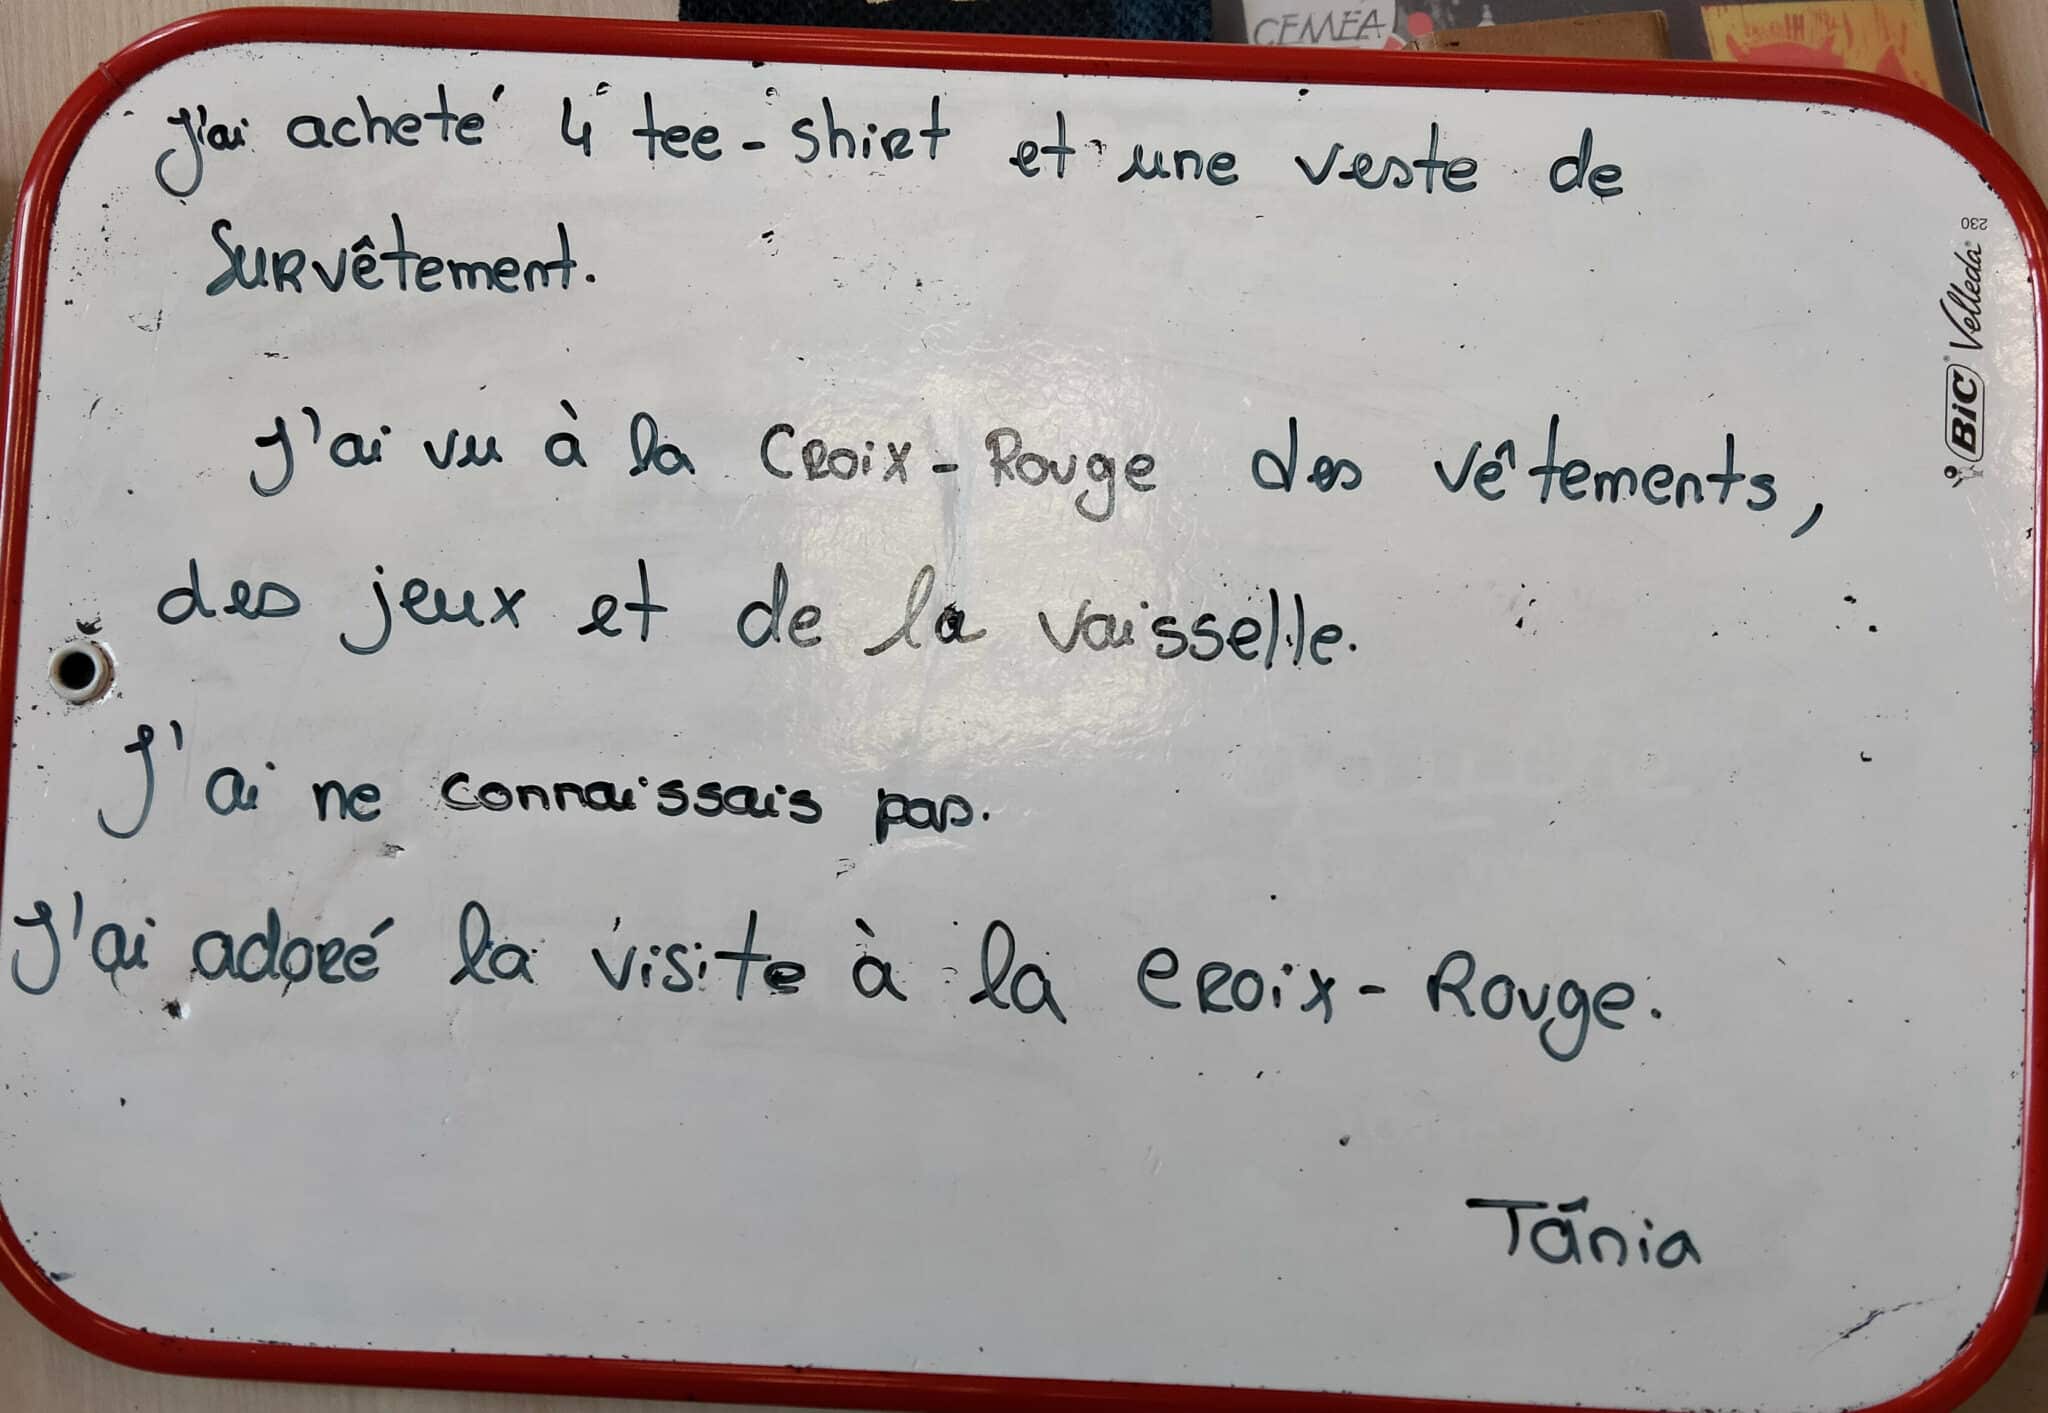 CEMEA
J'ai acheté 4 tee-shirt et une veste de
survêtement.
J'ai vu à la Croix-Rouge des vêtements,
des jeux et de la vaisselle.
J'ai ne connaissais pas.
J'ai adoré la visite à la croix-Rouge.
Tãnia
BIC Velleda
230